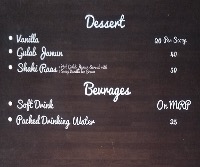 Dessert
Vanilla 20 Per Scoop
Gulab Jamun 40
Shahi Raas 50
Beverages
Soft Drink On MRP
Packed Drinking Water 25